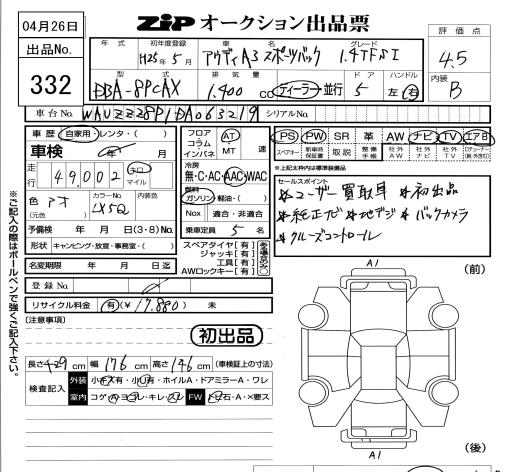 04月26日
ZIP オークション出品票
出品No.
332
評価点
4.5
内装
B
年式 初年度登録 車名 グレード
H25年5月 アウディA3 スポーツバック 1.4TFSI
型式 排気量 ドア ハンドル
DBA-8PCAX 1,400 cc ディーラー 並行 5 左・右
車台No. WAUZZZ8P1DA063219 シリアルNo.
車歴 自家用・レンタ・( )
車検 年 月
走行 49,002 キロ マイル
色 アオ (元色) カラーNo. LX5Q 内装色
予備検 年 月 日(3・8)No.
形状 キャンピング・放宣・事務室・( )
名変期限 年 月 日迄
フロア コラム インパネ AT MT 速
冷房
無・C・AC・AAC・WAC
燃料
ガソリン・軽油・( )
Nox 適合・非適合
乗車定員 5 名
スペアタイヤ[有]
ジャッキ[有]
工具[有]
AWロックキー[有]
PS PW SR 革 AW ナビ TV エアB
スペアキー 新車時保証書 取説 整備手帳 社外AW 社外ナビ 社外TV
※上記太枠内は標準装備品
セールスポイント
★ユーザー買取車 ★初出品
★純正ナビ ★地デジ ★バックカメラ
★クルーズコントロール
登録No.
リサイクル料金 有(¥17,880) 未
(注意事項)
初出品
長さ429cm 幅176cm 高さ146cm (車検証上の寸法)
検査記入 外装 小キズ有・小U有・ホイルA・ドアミラーA・ワレ
室内 コゲ・A・ヨゴレ・キレ・スレ FW トビ石・A・×要ス
※ご記入の際はボールペンで強くご記入下さい。
A1
(前)
A1
(後)